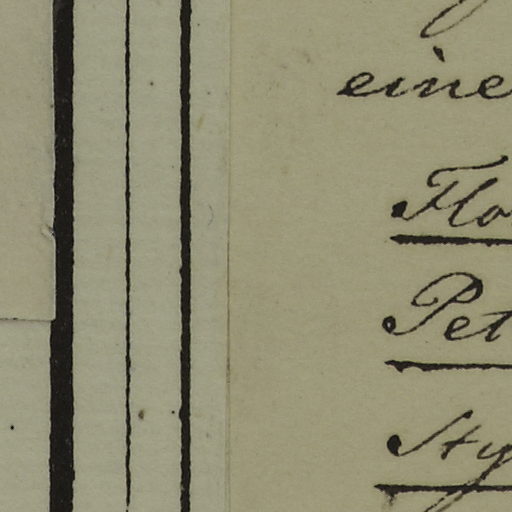 eine
Flo
Pet
Sty